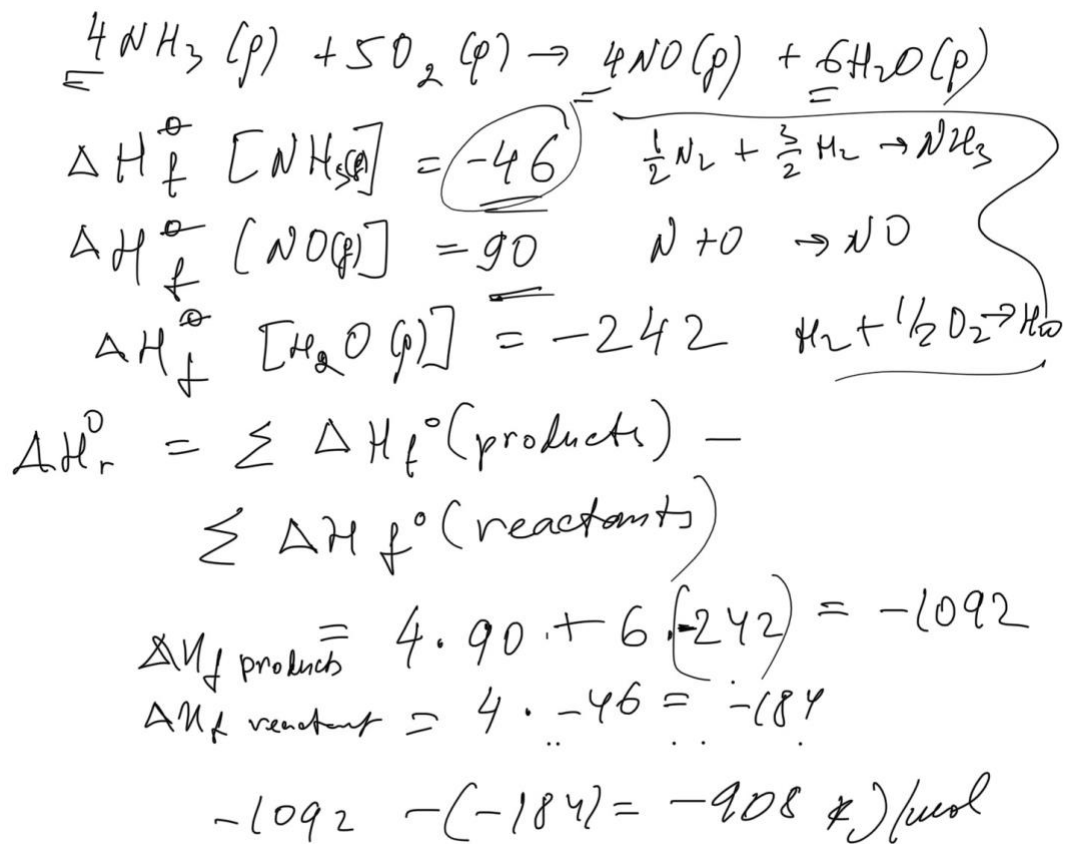 4NH₃ (g) + 5O₂ (g) → 4NO(g) + 6H₂O(g)
ΔH_f^⦵ [NH₃(g)] = -46    ½N₂ + 3/2 H₂ → NH₃
ΔH_f^⦵ [NO(g)] = 90    N + O → NO
ΔH_f^⦵ [H₂O (g)] = -242    H₂ + 1/2 O₂ → H₂O
ΔH_r^0 = Σ ΔH_f° (products) -
Σ ΔH_f° (reactants)
ΔH_f products = 4 · 90 + 6 · (-242) = -1092
ΔH_f reactant = 4 · -46 = -184
-1092 -(-184) = -908 kJ/mol